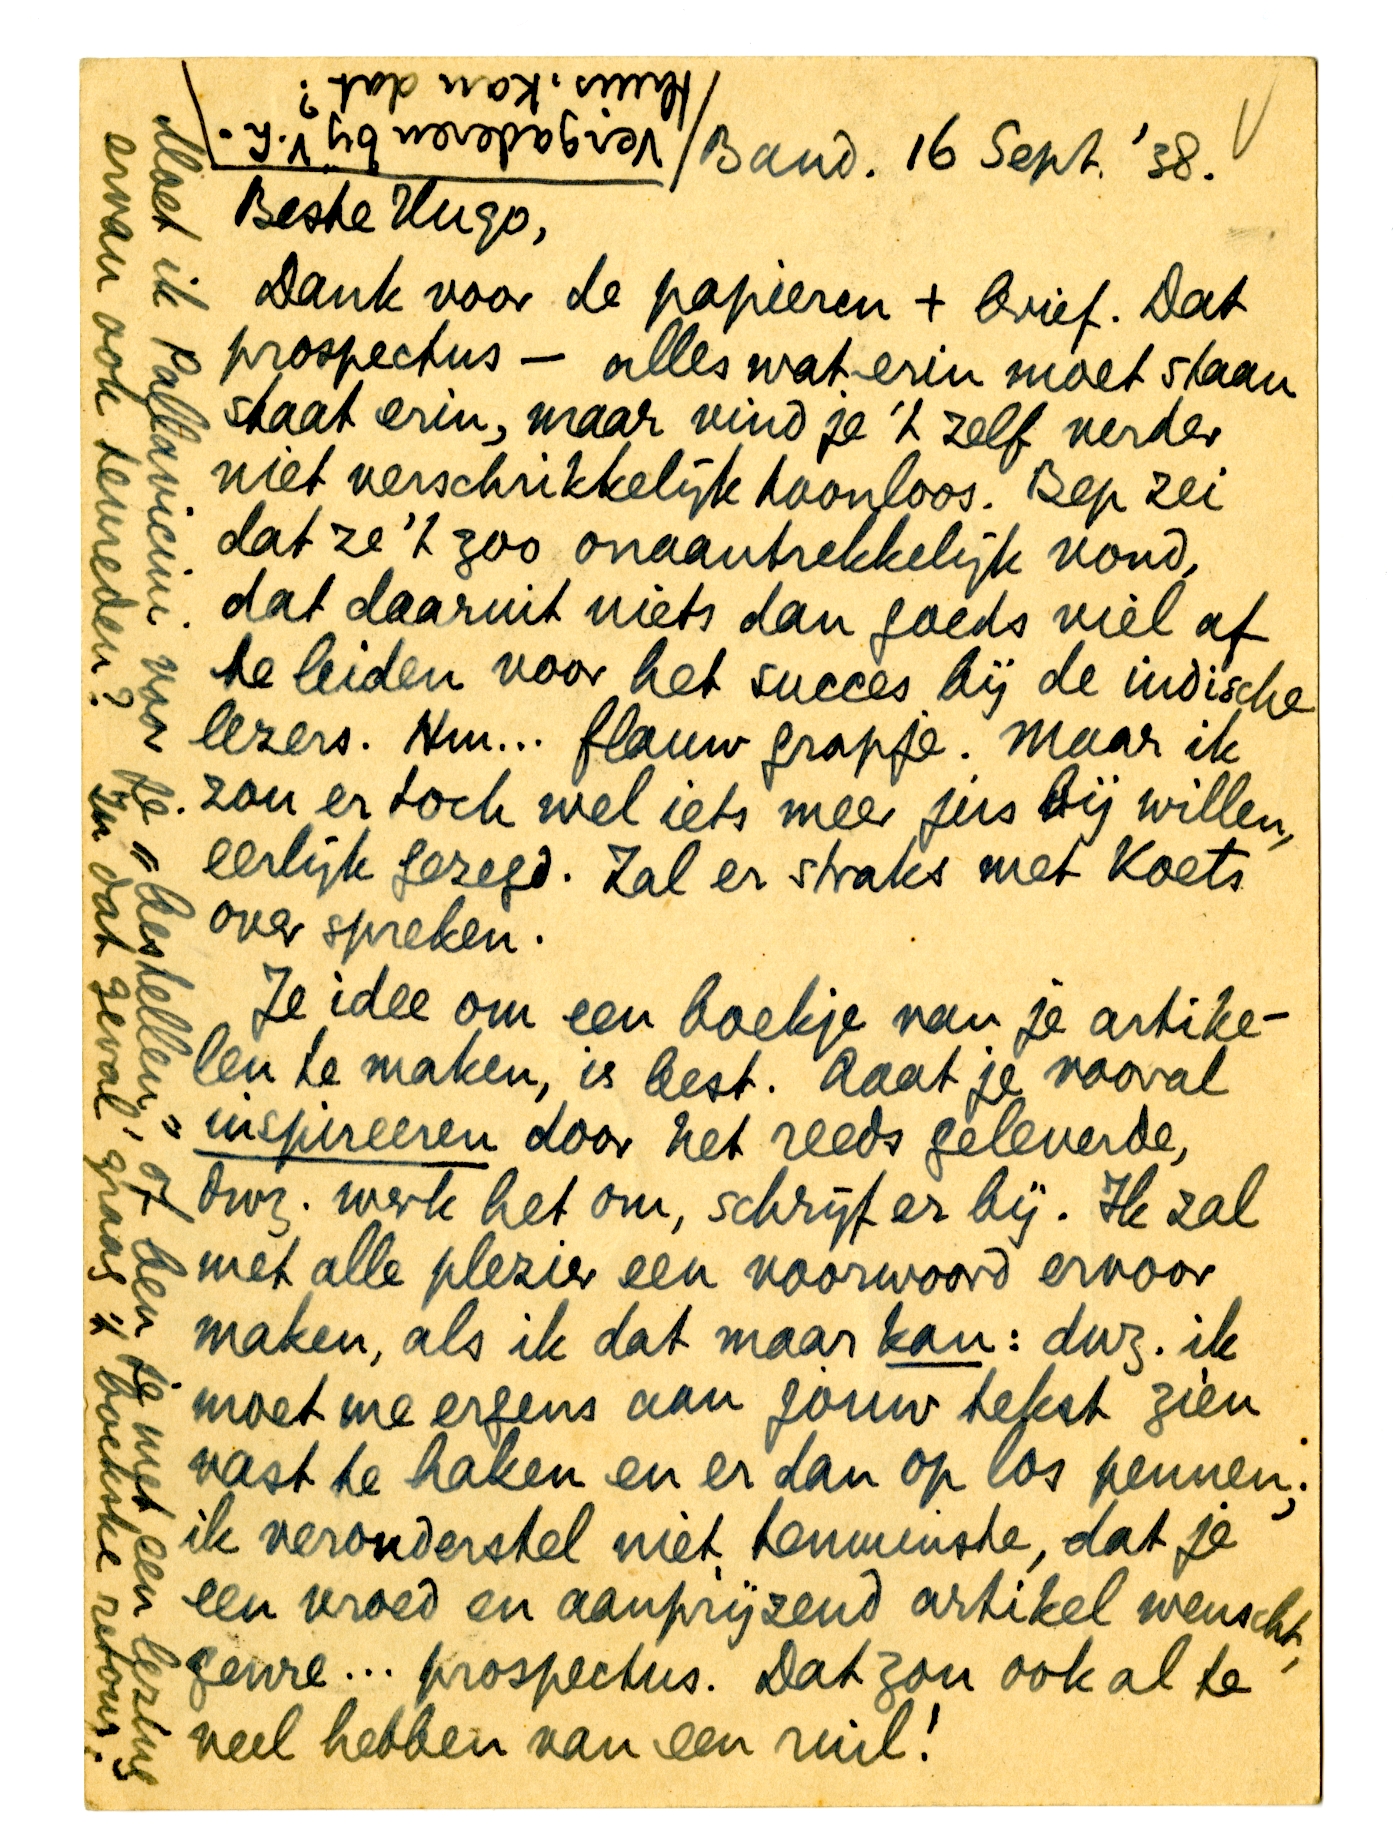 Band. 16 Sept. '38.
Beste Hugo,
Dank voor de papieren + brief. Dat
prospectus — alles wat erin moet staan
staat erin, maar vind je 't zelf verder
niet verschrikkelijk toonloos. Bep zei
dat ze 't zoo onaantrekkelijk vond,
dat daaruit niets dan goeds viel af
te leiden voor het succes bij de indische
lezers. Hm... flauw grapje. Maar ik
zou er toch wel iets meer jus bij willen,
eerlijk gezegd. Zal er straks met Koets
over spreken.
Je idee om een boekje van je artike-
len te maken, is best. Laat je vooral
inspireeren door het reeds geleverde,
dwz. werk het om, schrijf er bij. Ik zal
met alle plezier een voorwoord ervoor
maken, als ik dat maar kan: dwz. ik
moet me ergens aan jouw tekst zien
vast te haken en er dan op los pennen;
ik veronderstel niet tenminste, dat je
een vroed en aanprijzend artikel wenscht,
genre... prospectus. Dat zou ook al te
veel hebben van een ruil!
Moet ik Pallavicini voor je "bestellen", of ben je met een lezing
ervan ook tevreden? In dat geval graag 't boekske retour.
Vergaderen bij V.K.
thuis, kan dat?